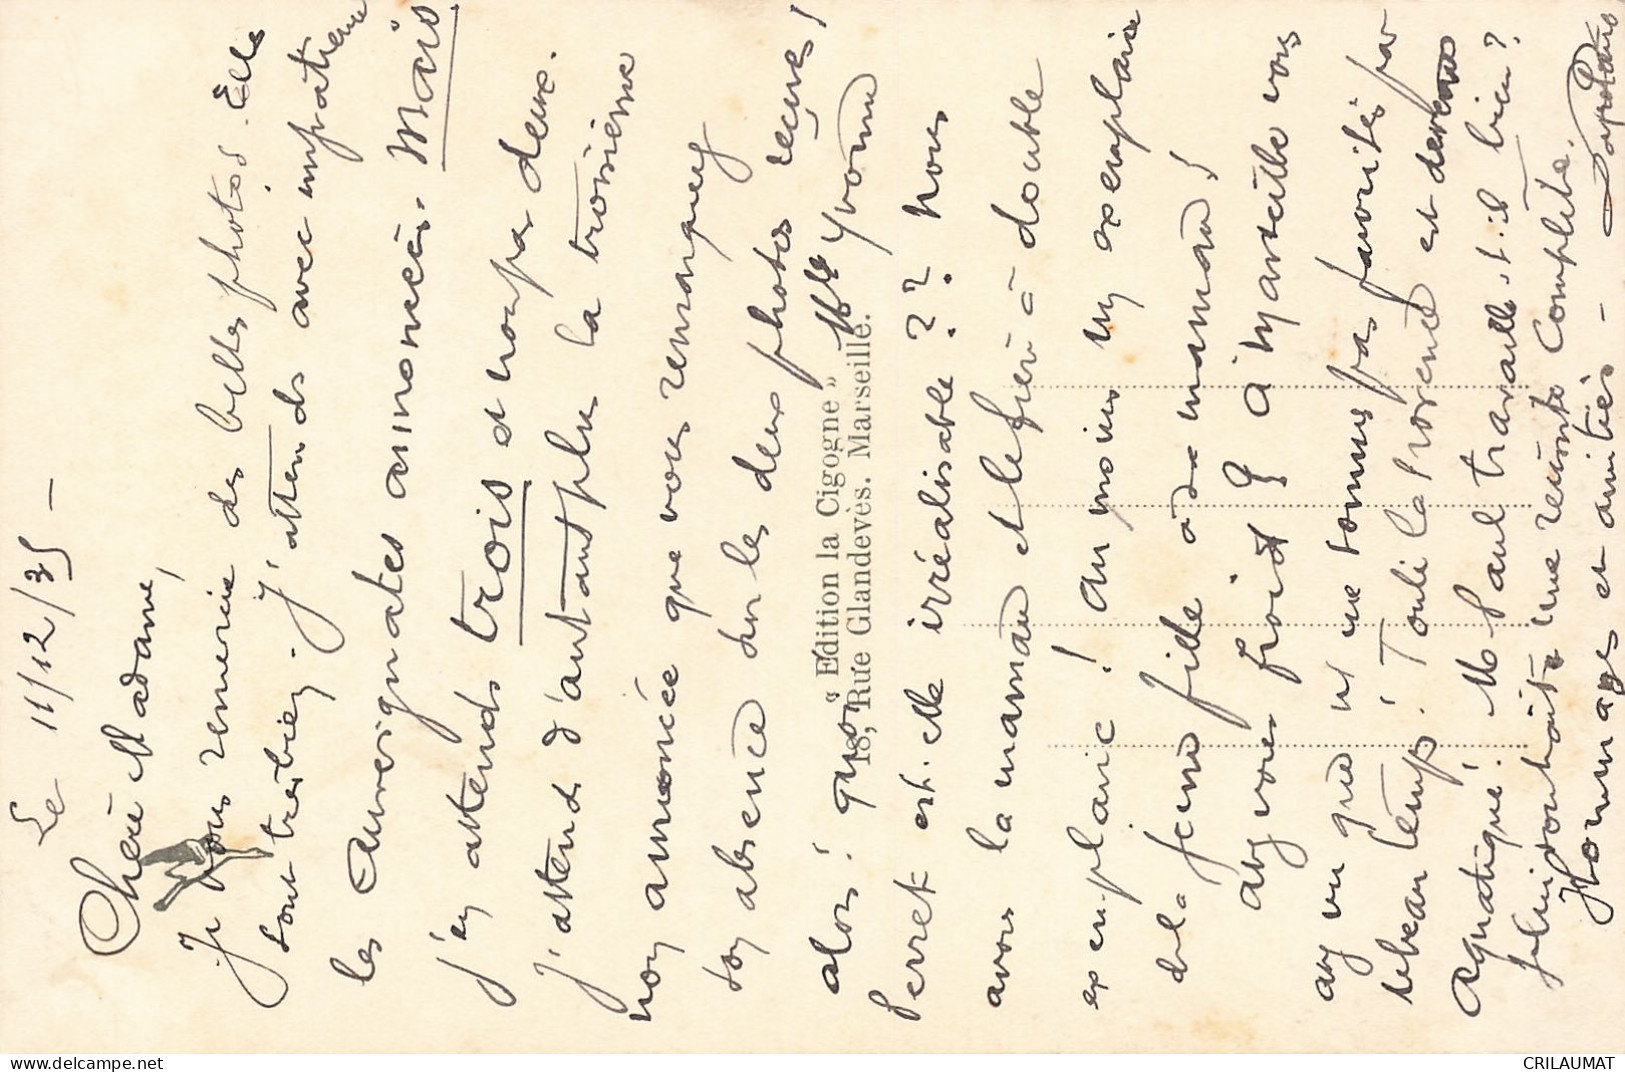 Le 11/12/35 –
Chère Madame,
Je vous remercie des belles photos. Elles
sont très bien. J'attends avec impatience
les Auvergnates annoncées. Mais
j'en attends trois et non pas deux.
J'attends d'autant plus la troisième
non annoncée que vous remarquez
son absence sur les deux photos reçues !
alors ! quoi Melle Yvonne
Perret est-elle irréalisable ?? Nous
avons la maman et le frère à double
exemplaire ! Au moins un exemplaire
de la jeune fille à sa maman !
Avez vous froid à Marseille vous
avez vu que nous ne sommes pas favorisés par
le beau temps ! Toute la Provence est devenue
Aquatique ! M Paul travaille-t-il bien ?
je lui souhaite une réussite complète.
Hommages et amitiés –
"Edition la Cigogne"
18, Rue Glandevès. Marseille.
delcampe.net
CRILAUMAT